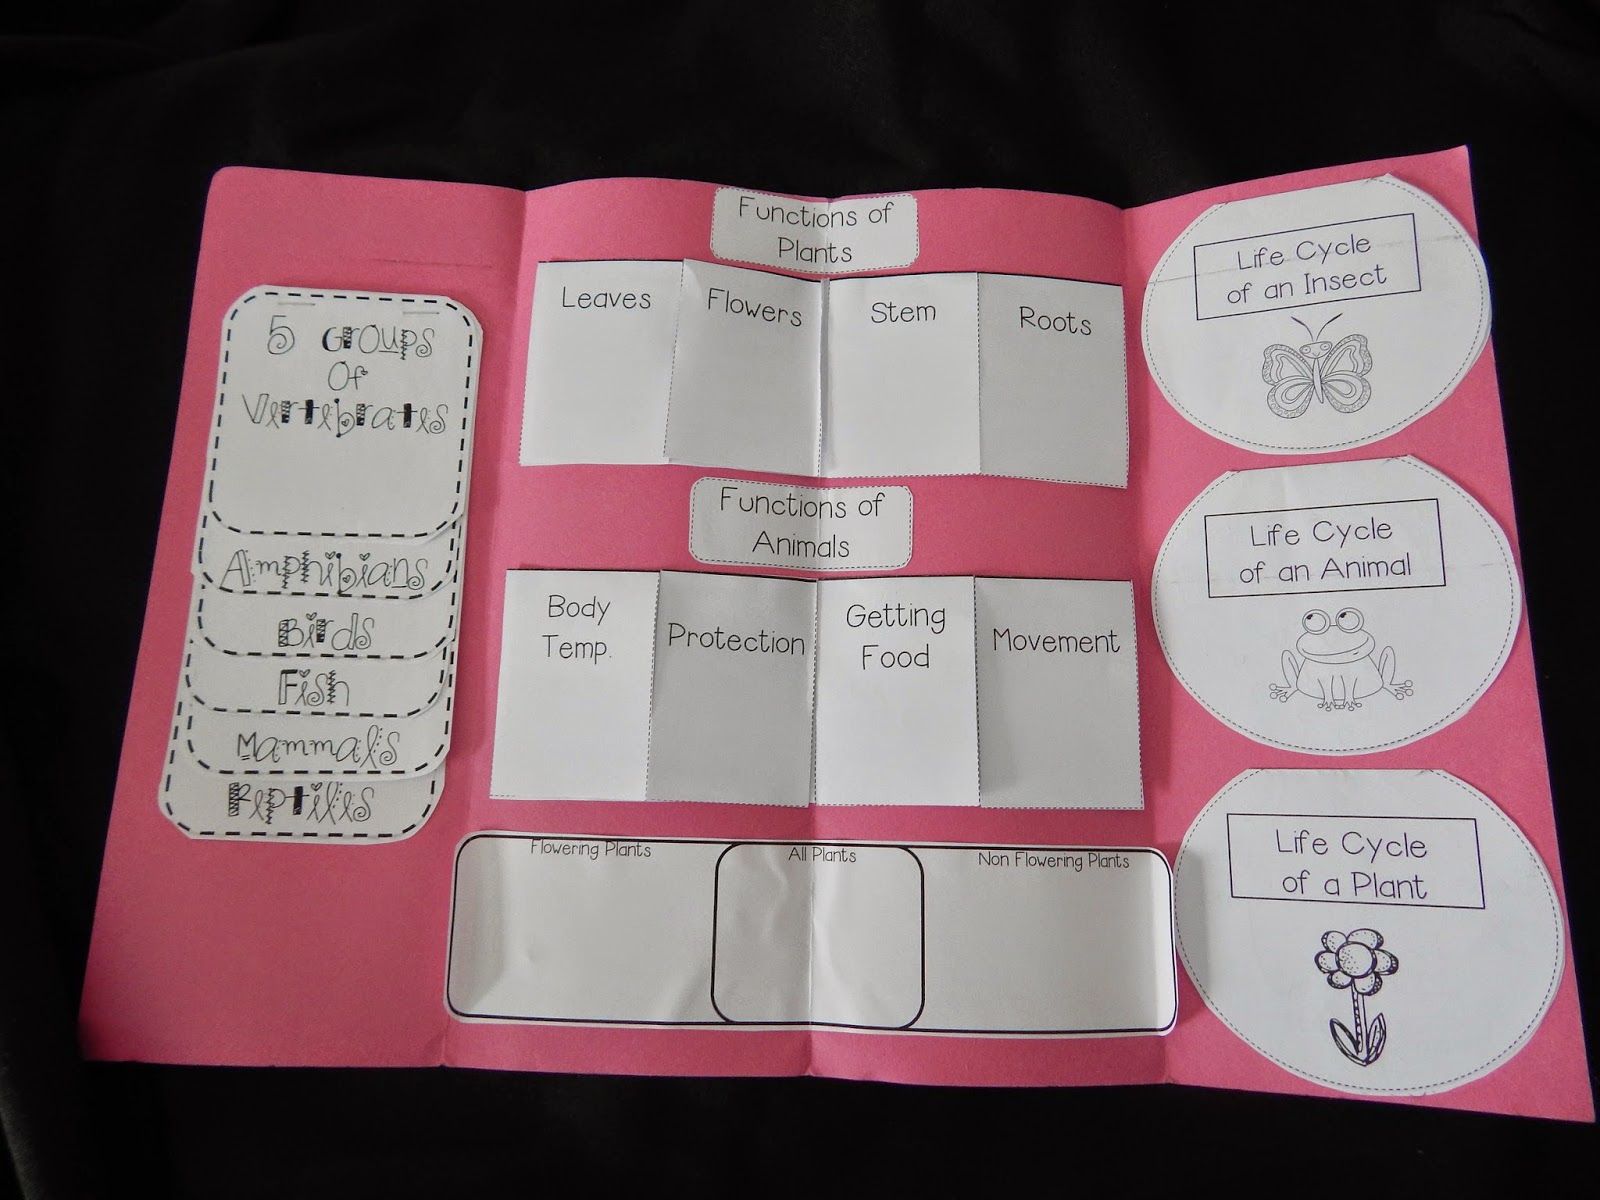 5 Groups
Of
Vertebrates
Amphibians
Birds
Fish
Mammals
Reptiles
Functions of
Plants
Leaves
Flowers
Stem
Roots
Functions of
Animals
Body
Temp.
Protection
Getting
Food
Movement
Flowering Plants
All Plants
Non Flowering Plants
Life Cycle
of an Insect
Life Cycle
of an Animal
Life Cycle
of a Plant